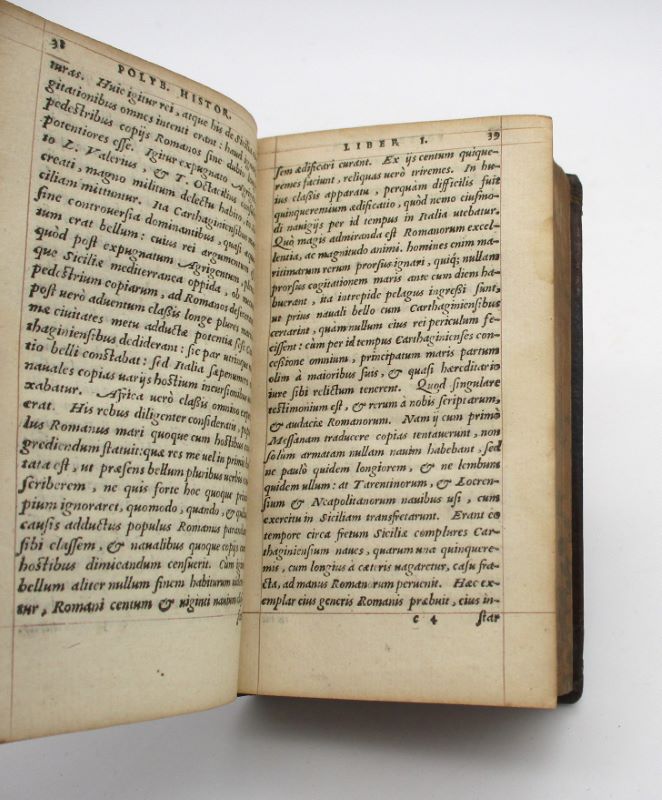 38
POLYB. HISTOR.
turas. Huic igitur rei, atque his de Sicilia
gitationibus omnes intenti erant: haud
pedestribus copijs Romanos sine dubio longe
potentiores esse. Igitur expugnato Agrigen
to L. Valerius, & T. Octacilius consules
creati, magno militum delectu habito, in
ciliam mittuntur. Ita Carthaginensibus
sine controuersia dominantibus, quasi
tum erat bellum: cuius rei argumentum
quòd post expugnatum Agrigentum,
que Siciliæ mediterranea oppida, ob metum
pedestrium copiarum, ad Romanos defecerunt
post uerò aduentum classis longe plures mariti
mæ ciuitates metu adductæ potentiæ sese Car
thaginiensibus dediderant: sic par utrinque
tio belli constabat: sed Italia sæpenumero
nauales copias uarijs hostium incursionibus
xabatur. Africa uerò classis omnino expers
erat. His rebus diligenter consideratis, popu
lus Romanus mari quoque cum hostibus con
grediendum statuit: quæ res me uel in primis
tata est, ut præsens bellum pluribus uerbis
scriberem, ne quis forte hoc quoque prin
pium ignoraret, quomodo, quando, & quibus
causis adductus populus Romanus parandam
sibi classem, & naualibus quoque copijs cum
hostibus dimicandum censuerit. Cum igitur
bellum aliter nullum finem habiturum
tur, Romani centum & uiginti nauium
LIBER I. 39
sem ædificari curant. Ex ijs centum quique-
remes faciunt, reliquas uerò triremes. In hu-
ius classis apparatu, perquàm difficilis fuit
quinqueremium ædificatio, quod nemo eiusmo-
di nauigijs per id tempus in Italia utebatur.
Quò magis admiranda est Romanorum excel-
lentia, ac magnitudo animi. homines enim ma-
ritimarum rerum prorsus ignari, quiq; nullam
prorsus cogitationem maris ante eum diem ha-
buerant, ita intrepide pelagus ingressi sunt,
ut prius nauali bello cum Carthaginensibus
certarint, quam nullum eius rei periculum fe-
cissent: cùm per id tempus Carthaginienses con-
cessione omnium, principatum maris partum
olim à maioribus suis, & quasi hæreditario
iure sibi relictum tenerent. Quod singulare
testimonium est, & rerum à nobis scriptarum,
& audaciæ Romanorum. Nam ij cum primò
Messanam traducere copias tentauerunt, non
solum armatam nullam nauim habebant, sed
ne paulò quidem longiorem, & ne lembum
quidem ullum: at Tarentinorum, & Locren-
sium & Neapolitanorum nauibus usi, cum
exercitu in Siciliam transfretarunt. Erant eo
tempore circa fretum Siciliæ complures Car-
thaginiensium naues, quarum una quinquere-
mis, cum longius à cæteris uagaretur, casu fra-
cta, ad manus Romanorum peruenit. Hæc ex-
emplar eius generis Romanis præbuit, eius in-
c 4 star